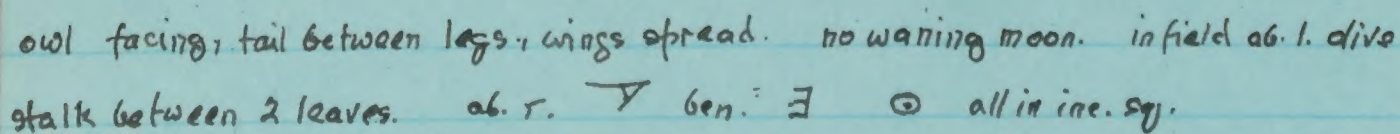 owl facing, tail between legs, wings spread. no waning moon. in field ab. l. olive
stalk between 2 leaves. ab. r. ben: Ǝ ⊙ all in inc. sq.